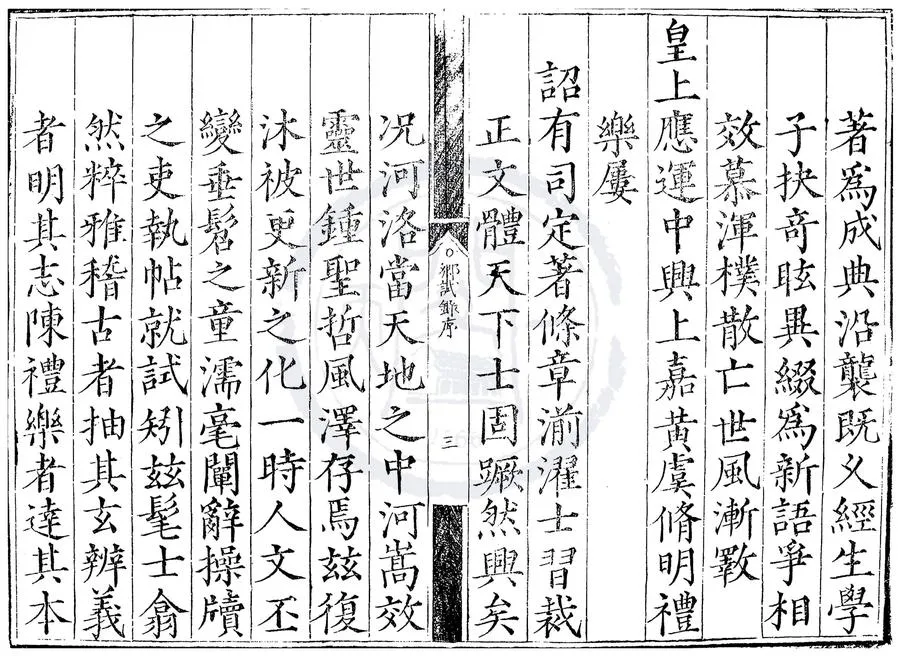 著爲成典沿襲既久經生學
子抉奇眩異綴爲新語爭相
效慕渾樸散亡世風漸斁
皇上應運中興上嘉黃虞脩明禮
樂屢
詔有司定著條章湔濯士習裁
正文體天下士固蹶然興矣
鄉試錄序 三
况河洛當天地之中河嵩效
靈世鍾聖哲風澤存焉茲復
沐被更新之化一時人文丕
變垂髫之童濡毫闡辭操牘
之吏執帖就試矧茲髦士翕
然粹雅稽古者抽其玄辨義
者明其志陳禮樂者達其本